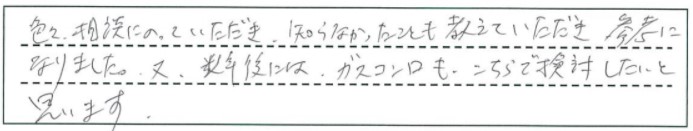 色々、相談にのっていただき、知らなかったことも教えていただき 参考に
なりました。又、数年後には、ガスコンロも、こちらで検討したいと
思います。